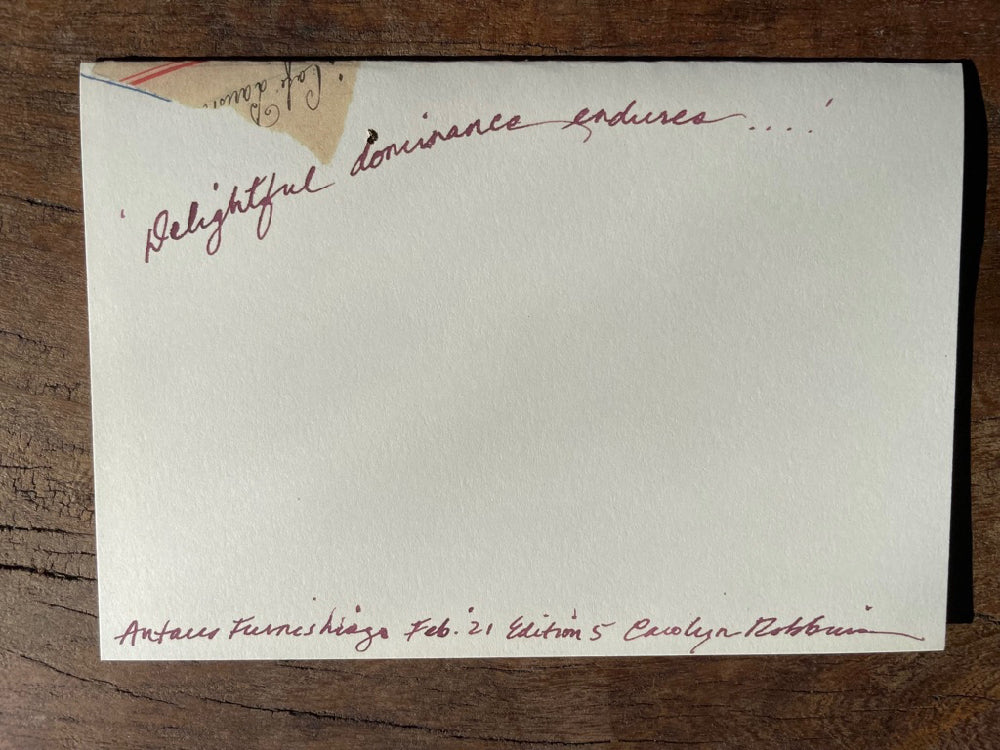 'Delightful dominance endures ....'
Antaeus Furnishings Feb. '21 Edition 5 Carolyn Robbins